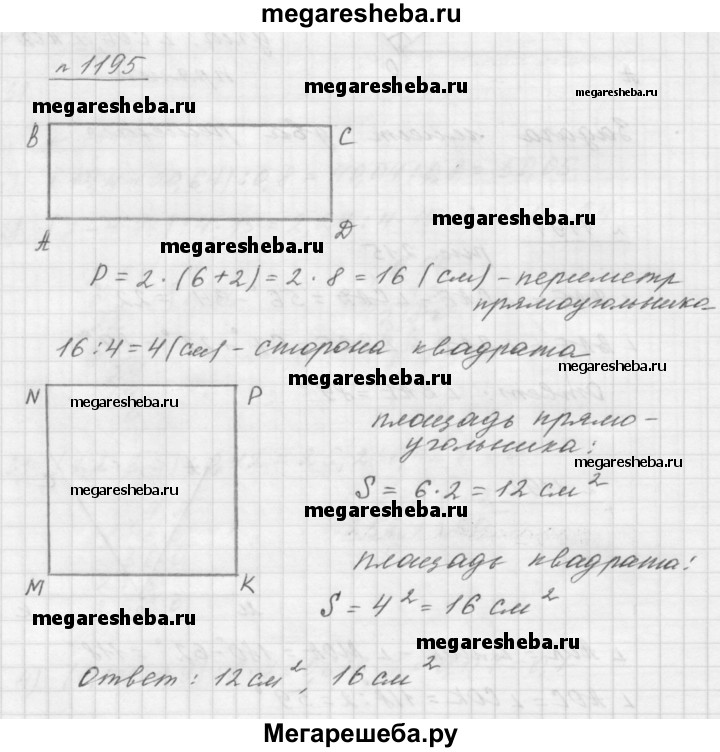 megaresheba.ru
n 1195
megaresheba.ru
megaresheba.ru
megaresheba.ru
B C
megaresheba.ru
A D
megaresheba.ru
P = 2 · (6+2) = 2 · 8 = 16 (см) - периметр
прямоугольника
16 : 4 = 4 (см) - сторона квадрата
megaresheba.ru
megaresheba.ru
N P
megaresheba.ru
площадь прямо-
угольника:
megaresheba.ru
megaresheba.ru
S = 6 · 2 = 12 см²
megaresheba.ru
площадь квадрата:
M K
S = 4² = 16 см²
megaresheba.ru
megaresheba.ru
Ответ: 12 см², 16 см²
Мегарешеба.ру